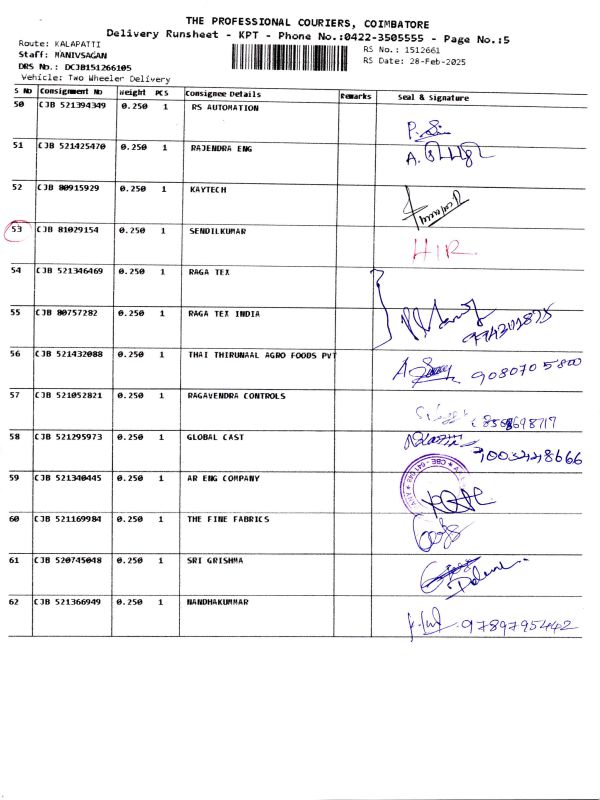 THE PROFESSIONAL COURIERS, COIMBATORE
Delivery Runsheet - KPT - Phone No.:0422-3505555 - Page No.:5
Route: KALAPATTI
Staff: MANIVSAGAN
DRS No.: DCJB151266105
Vehicle: Two Wheeler Delivery
RS No.: 1512661
RS Date: 28-Feb-2025
S No Consignment No Weight PCS Consignee Details Remarks Seal & Signature
50 CJB 521394349 0.250 1 RS AUTOMATION
51 CJB 521425470 0.250 1 RAJENDRA ENG
52 CJB 80915929 0.250 1 KAYTECH
53 CJB 81029154 0.250 1 SENDILKUMAR HIR
54 CJB 521346469 0.250 1 RAGA TEX
55 CJB 80757282 0.250 1 RAGA TEX INDIA
56 CJB 521432088 0.250 1 THAI THIRUNAAL AGRO FOODS PVT 9080705800
57 CJB 521052821 0.250 1 RAGAVENDRA CONTROLS
58 CJB 521295973 0.250 1 GLOBAL CAST
59 CJB 521340445 0.250 1 AR ENG COMPANY
60 CJB 521169984 0.250 1 THE FINE FABRICS
61 CJB 520745048 0.250 1 SRI GRISHMA
62 CJB 521366949 0.250 1 NANDHAKUMMAR 9789795442